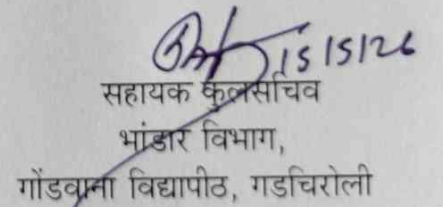 15/5/26
सहायक कुलसचिव
भांडार विभाग,
गोंडवाना विद्यापीठ, गडचिरोली